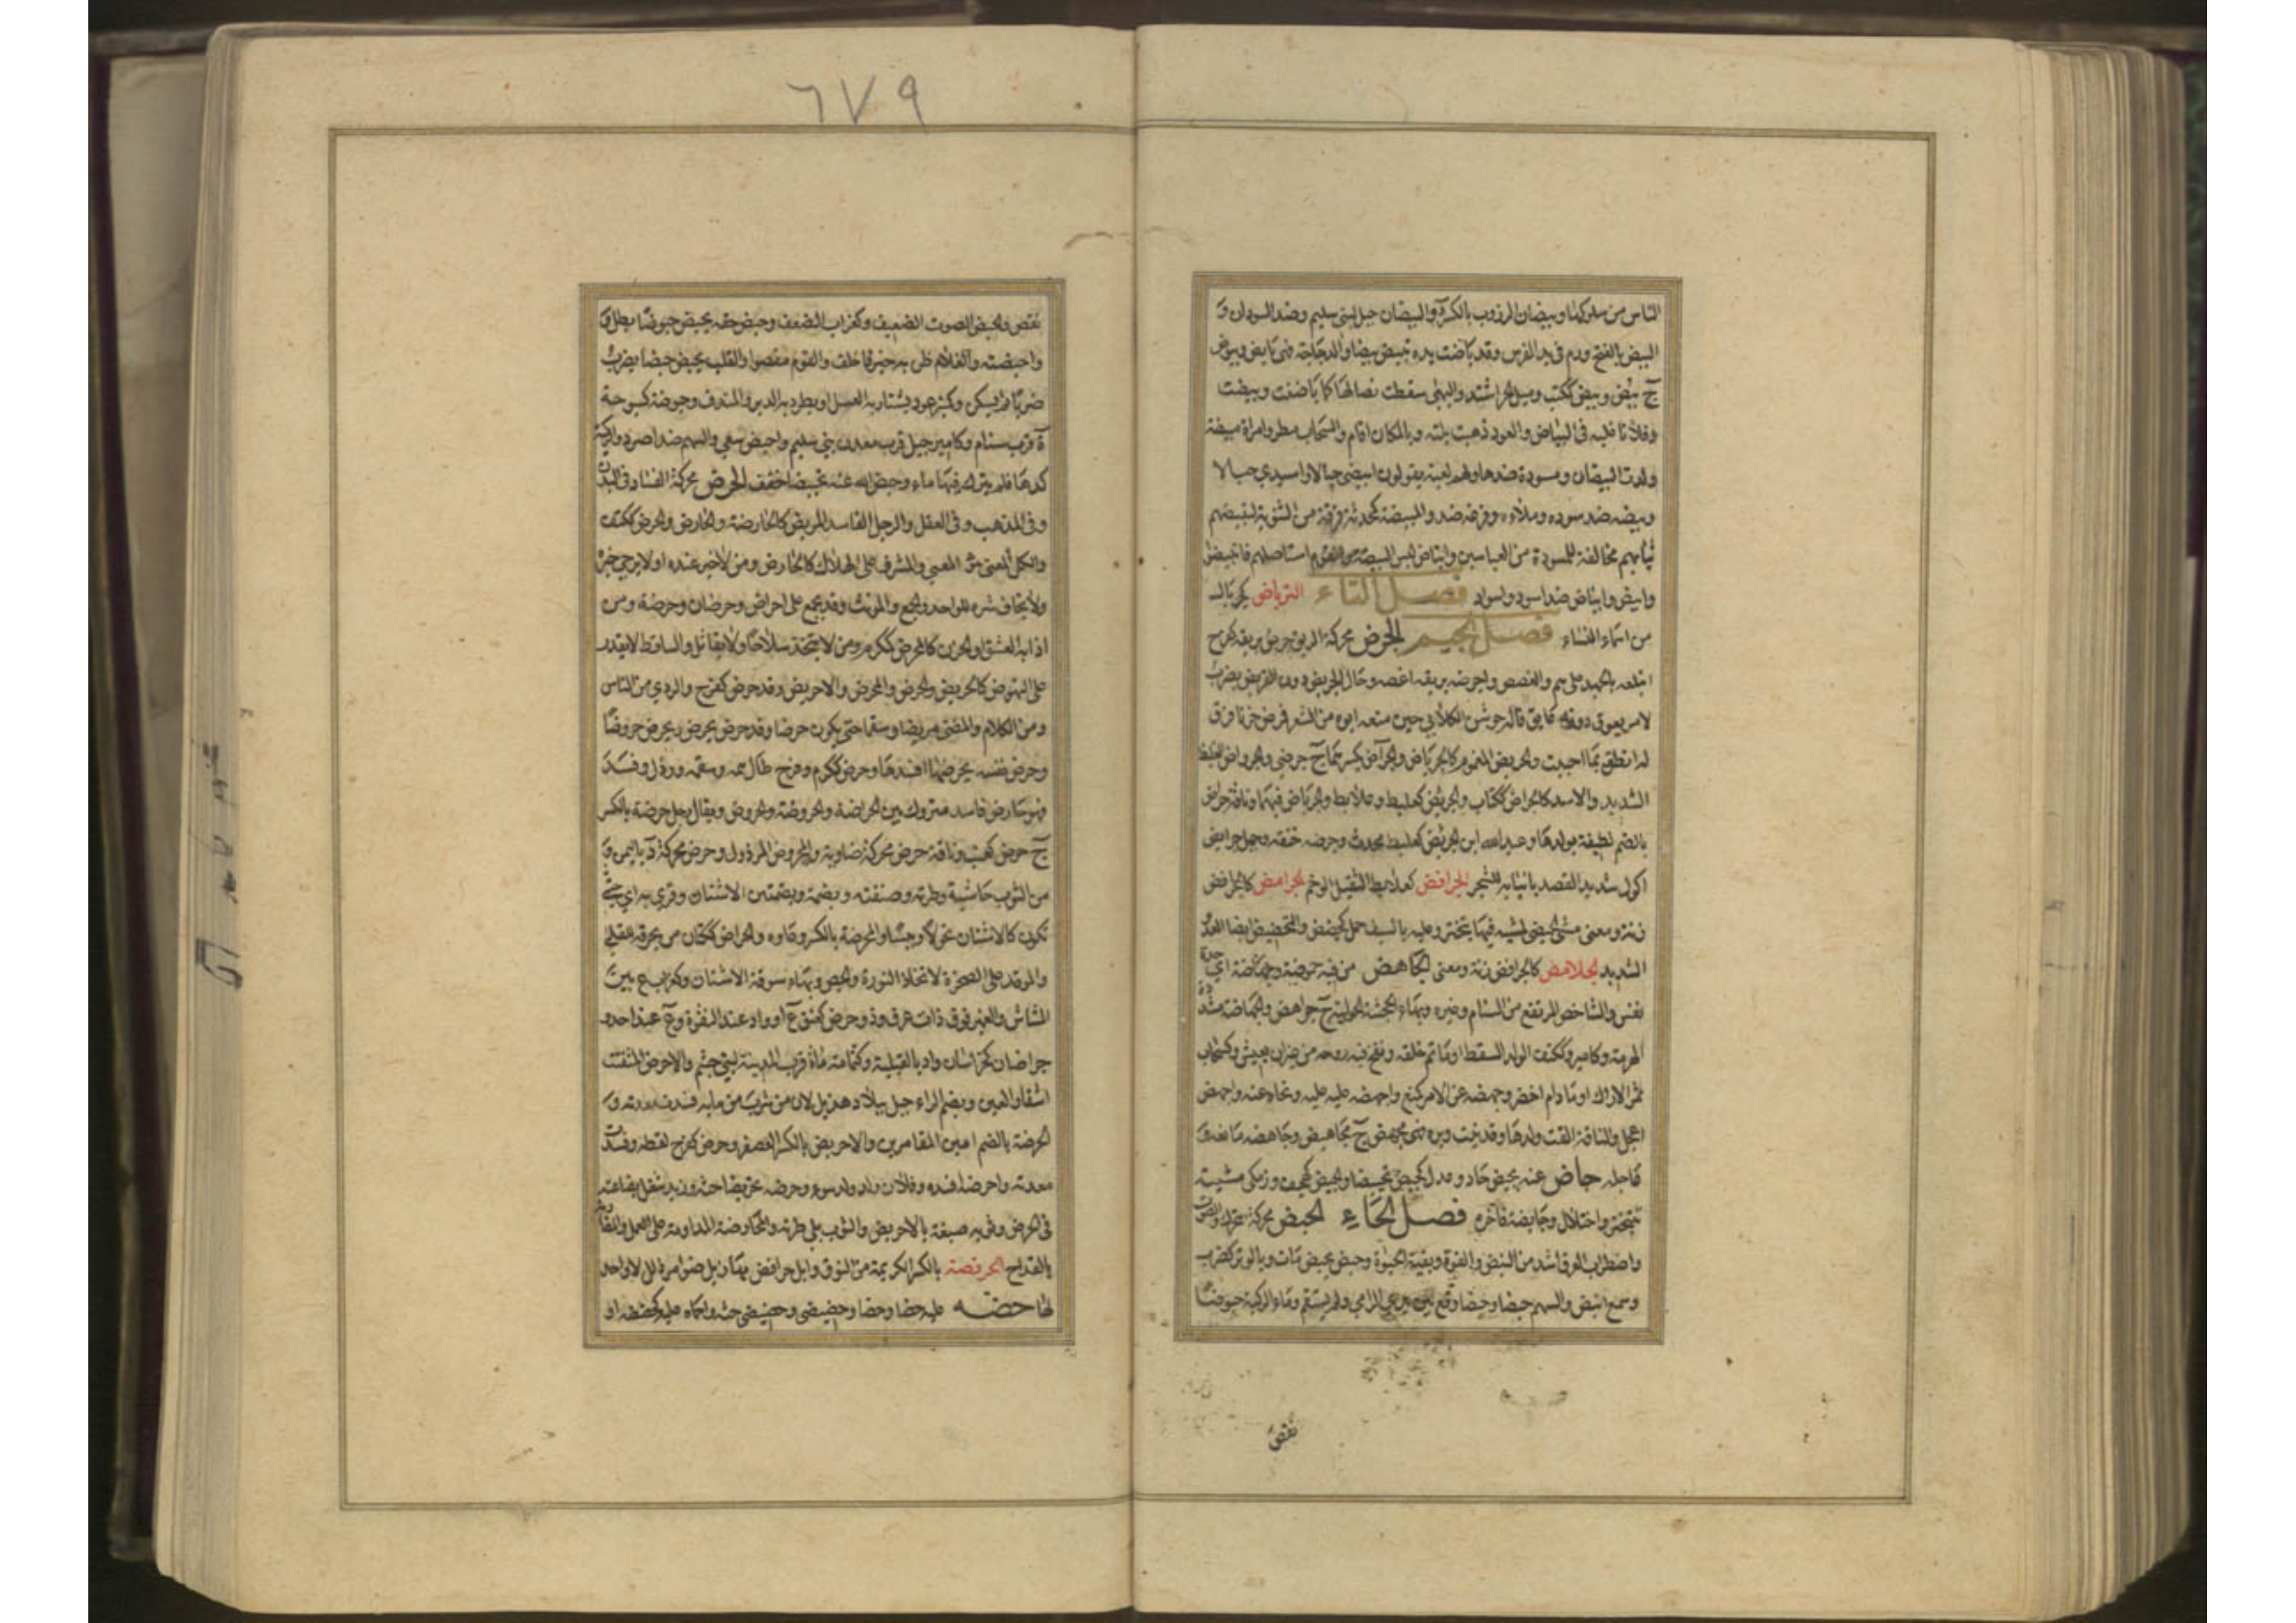 ٦٧٩
الناس من سلو كملا وبيضان الزروب بالكسر د والبيضان جبل لبني سليم وضد السودان و
البيض بالفتح ورم في يد الفرس وقد باضت يده تبيض بيضا والدجاجة فهي بايض وبيوض
ج بيض وبيض ككتب وميل والحر اشتد والبهمى سقطت نصالها كاباضت وبيضت
وفلانا غلبه في البياض والعود ذهبت بلته وبالمكان اقام والسحاب مطر وامراة مبيضة
ولدت البيضان ومسودة ضدها ولهم لعبة يقولون ابيضي حبالا واسيدي حبالا
وبيضه ضد سوده وملاه وفرغه ضد والمبيضة كمحدثة فرقة من الثنوية لتبييضهم
ثيابهم مخالفة للمسودة من العباسيين وابتاض لبس البيضة والقوم استاصلهم فابتيضوا
وابيض وابياض ضد اسود واسواد فصل التاء الترياض كجربال
من اسماء النساء فصل الجيم الجرض محركة الريق جرض بريقه كفرح
ابتلعه بالجهد على هم والغصص واجرضه بريقه اغصه وحال الجريض دون القريض يضرب
لامر يعوق دونه عايق قاله جوشن الكلابي حين منعه ابوه من الشعر فمرض حزنا فرق
له انطق بما احببت والجريض المغموم كالجرياض والجراض بكسرهما ج جرضى والجرواض الغليظ
الشديد والاسد كالجراض ككتاب والجرئض كعلبط وعلابط والجرياض فيهما وناقة جراض
بالضم لطيفة بولدها وعبد الله ابن الجرئض كعلبط محدث وجرضه خنقه وجمل جرايض
اكول شديد القصد بانيابه للشجر الجرافض كعلابط الثقيل الوخم الجرامض كالجرافض
زنة ومعنى مشى الجيضى لمشية فيها تبختر وعليه بالسيف حمل كجضض والتجضيض ايضا العدو
الشديد الجلامض كالجرافض زنة ومعنى الجاهض من فيه جهوضة وجهاضة اي حدة
نفس والشاخص المرتفع من السنام وغيره وبهاء الجحشة الحولية ج جواهض والجهاضة مشددة
الهرمة وكامير وككتف الولد السقط او ما تم خلقه ونفخ فيه روحه من غير ان يعيش وكسحاب
ثمر الاراك او ما دام اخضر وجهضه عن الامر كمنع واجهضه عليه غلبه ونحاه عنه واجهض
اعجل والناقة القت ولدها وقد نبت وبره فهي مجهض ج مجاهيض وجاهضه مانعه و
عاجله جاض عنه يجيض حاد وعدل كجيض تجييضا والجيض كهجف وزمكى مشية
بتبختر واختلال وجايضه فاخره فصل الحاء الحبض محركة التحرك والصوت
واضطراب العرق اشد من النبض والقوة وبقية الحيوة وحبض يحبض مات وبالوتر كضرب
وسمع انبض والسهم حبضا وحبضا وقع بين يدي الرامي ولم يستقم وماء الركية حبوضا
نقص
نقص والحبض الصوت الضعيف وكغراب الضعف وحبض حقه يحبض حبوضا بطل و
واحبضته والغلام ظن به خير فاخلف والقوم نقصوا والقلب يحبض حبضا يضرب
ضربا ثم يسكن وكمنبر عود يشتار به العسل او يطرد به الدبر والمندف وحبوضة كسبوحة
ة قرب شبام وكامير جبل قرب معدن بني سليم واحبض سعى والسهم ضد اصرد والركية
كدها فلم يترك فيها ماء وحبض الله عنه تحبيضا خفف الحرض محركة الفساد في البدن
وفي المذهب وفي العقل والرجل الفاسد المريض كالحارضة والحارض والحرض ككتف
والكال المعيي والمشرف على الهلاك كالحارض ومن لا خير عنده او لا يرجى خيره
ولا يخاف شره للواحد والجمع والمونث وقد يجمع على احراض وحرضان وحرضة ومن
اذابه العشق او الحزن كالمحرض ككرم ومن لا يتخذ سلاحا ولا يقاتل والساقط لا يقدر
على النهوض كالحريض والحرض والمحرض والاحريض وقد حرض كفرح والردي من الناس
ومن الكلام والمضنى مرضا وسقما حتى يكون حرضا وقد حرض يحرض ويحرض حروضا
وحرض نفسه يحرضها افسدها وحرض ككرم وفرح طال همه وسقمه ورذل وفسد
فهو حارض فاسد متروك بين الحراضة والحروضة والحروض ويقال رجل حرضة بالكسر
ج حرض كعنب وناقة حرض محركة ضاوية والمحروض المرذول وحرض محركة د باليمن و
من الثوب حاشيته وطرته وصنفته وبضمة وبضمتين الاشنان وقري به اي حتى
تكون كالاشنان نحولا ويبسا والمحرضة بالكسر وعاوه والحراض ككتان من يحرقه للقلي
والموقد على الصخرة لاتخاذ النورة والجص وبهاء سوقة الاشنان وكغراب ع بين
المشاش والغمير فوق ذات عرق وذو حرض كعنق ع او واد عند النقرة وع عند احد و
حراضان كخراسان واد بالقبلية وكثمامة ماة قرب المدينة لبني جشم والاحرض المتفتت
اشفار العين وبضم الراء جبل ببلاد هذيل لان من شرب من مايه فسدت معدته و
الحرضة بالضم امين المقامرين والاحريض بالكسر العصفر وحرض كفرح لقطه وفسدت
معدته واحرضه افسده وفلان ولد ولد سوء وحرضه تحريضا حثه وزيد شغل بضاعته
في الحرض وثوبه صبغه بالاحريض والثوب بلي طرته والمحارضة المداومة على العمل والمضاربة
بالقداح الحرفضة بالكسر الكريمة من النوق وابل حرافض مهازيل ضوامر بلال لا واحد
لها حضه عليه حضا وحضا وحضيضى وحضيضى حثه واحماه عليه كحضضه او